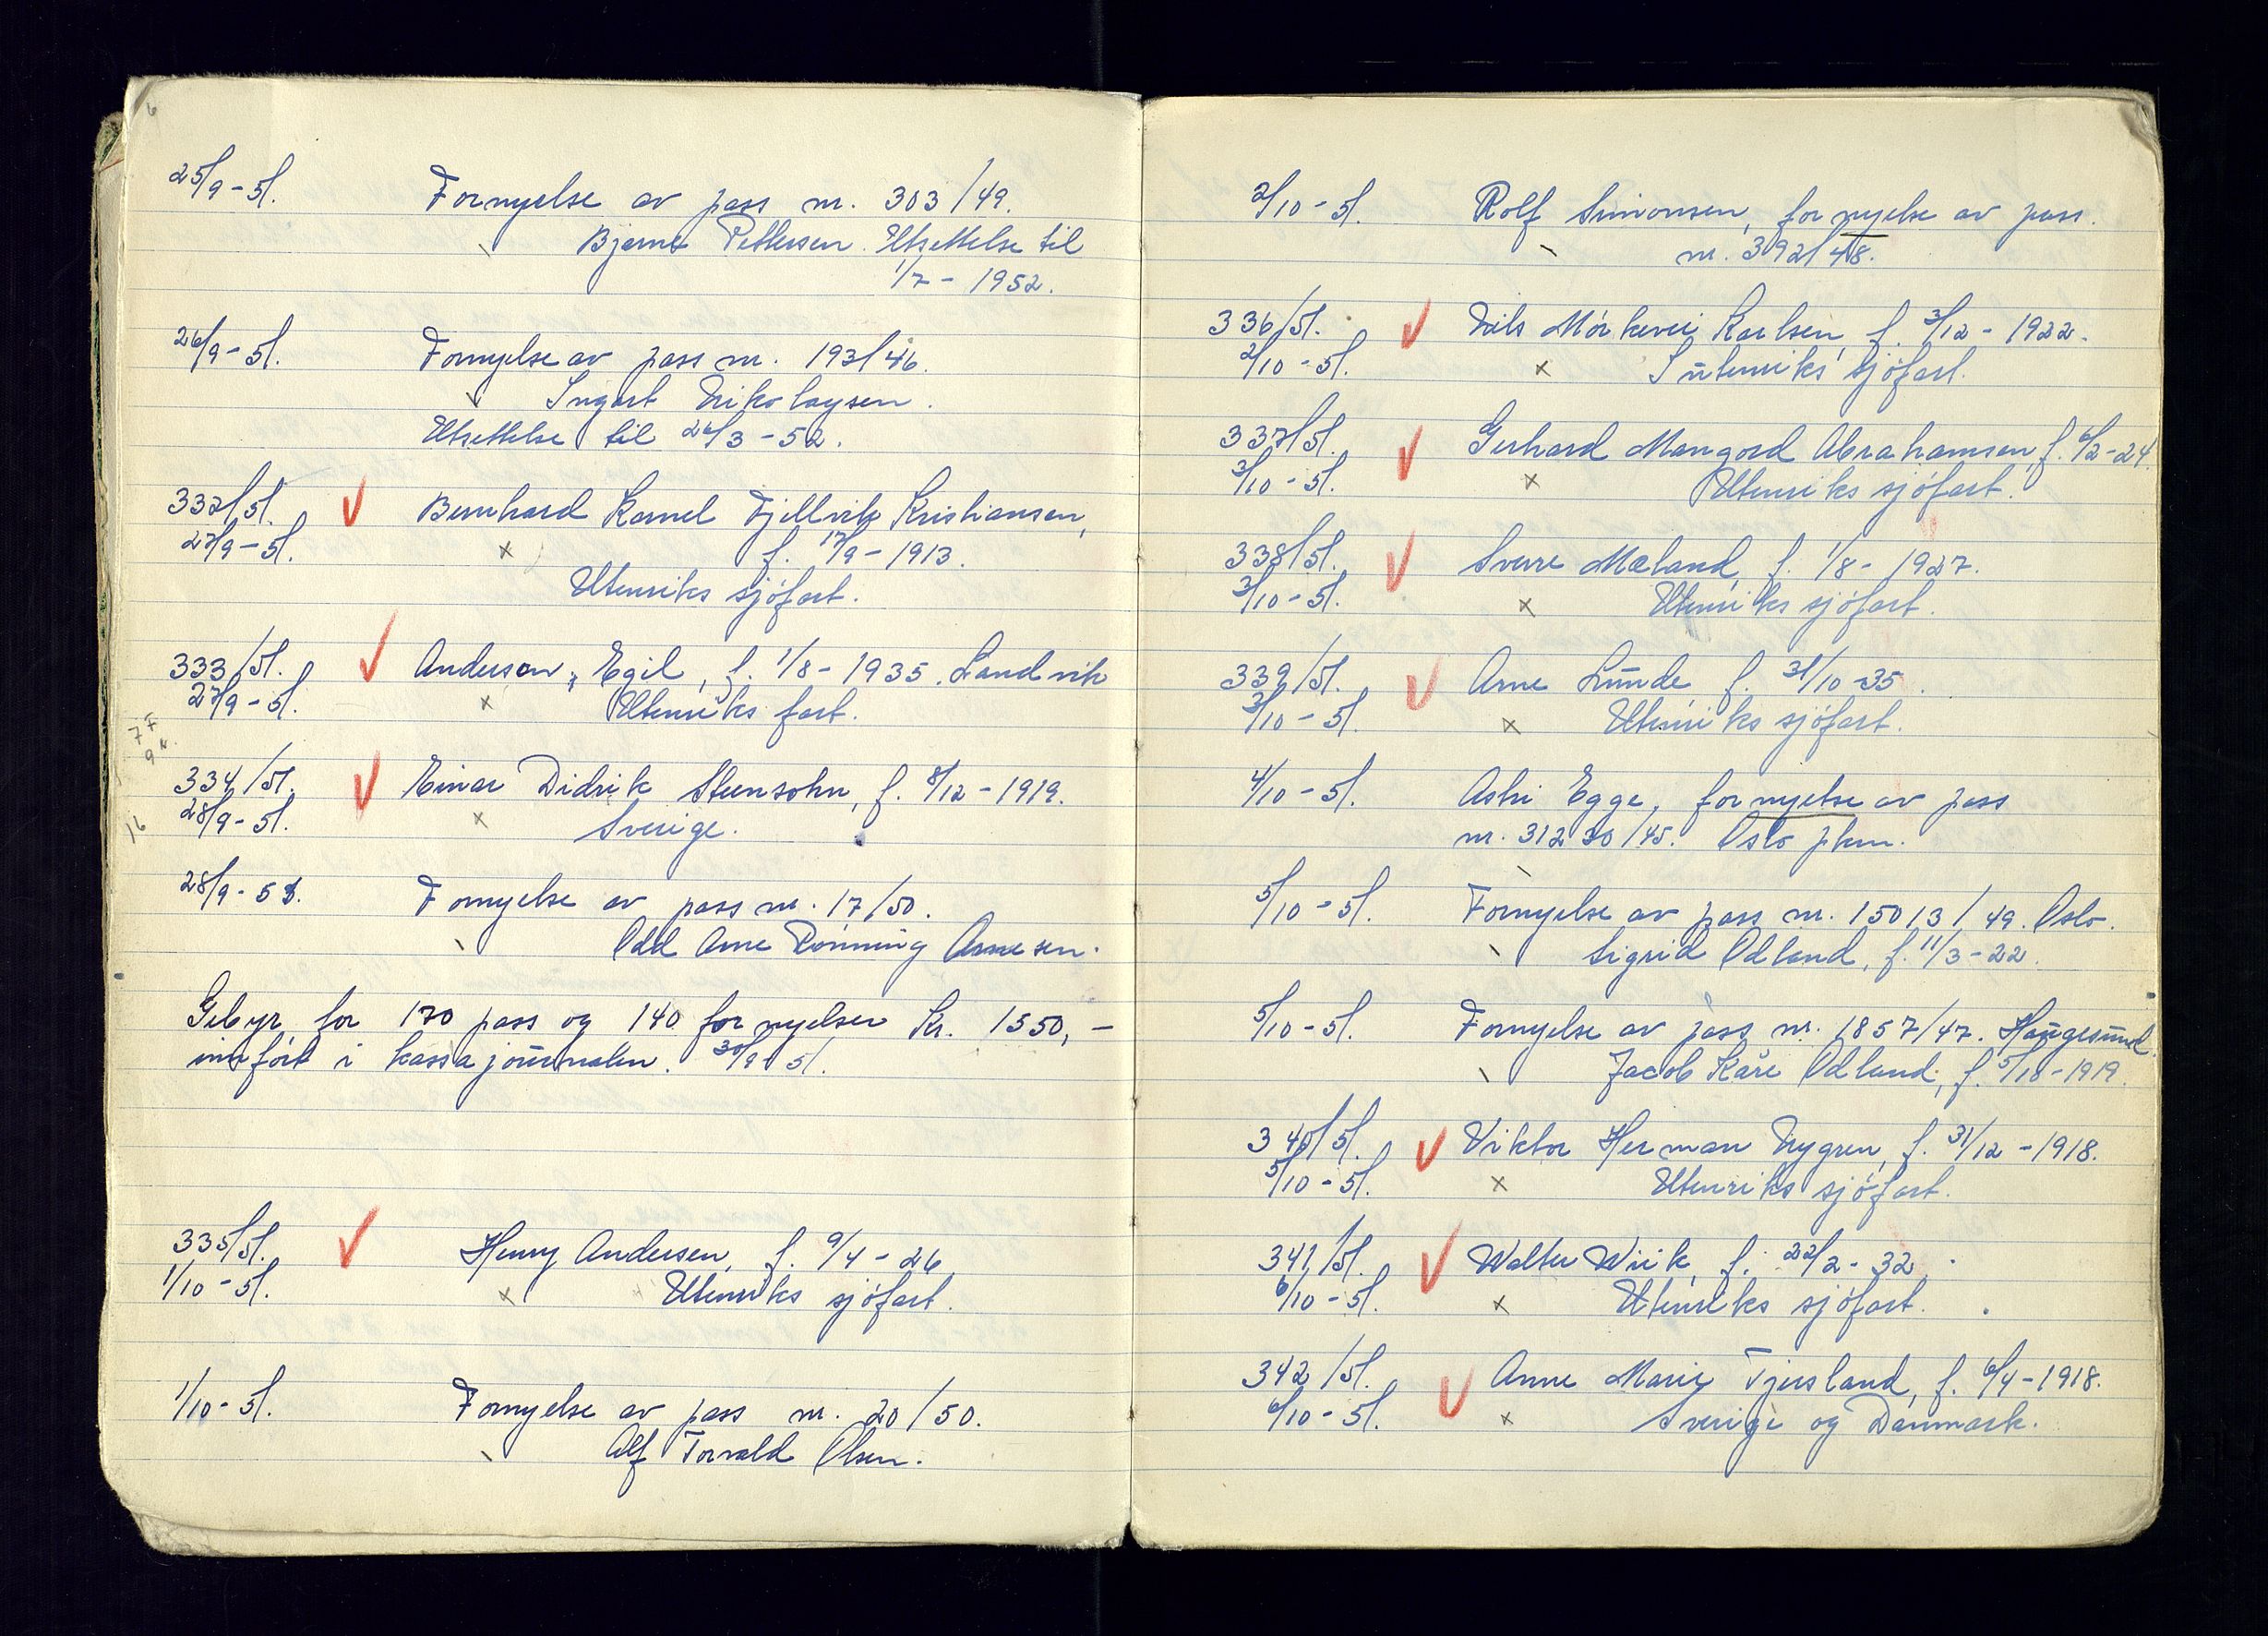 25/9-51. Fornyelse av pass nr. 303/49.
Bjarne Pettersen. Utsettelse til
1/7 - 1952.
26/9-51. Fornyelse av pass nr. 193/46.
Ingart Nikolaysen.
Utsettelse til 26/3-52.
332/51. Bernhard Kornel Fjellvik Kristiansen,
27/9-51. f. 17/9-1913.
Utenriks sjöfart.
333/51. Anderson, Egil, f. 1/8-1935. Landvik
27/9-51. Utenriks fart.
334/51. Einar Didrik Steensohn, f. 8/12-1919.
28/9-51. Sverige.
28/9-51. Fornyelse av pass nr. 17/50.
Odd Arne Rönning Arnesen.
Gebyr for 170 pass og 140 fornyelser Kr. 1550,-
innfört i kassajournalen. 30/9 51.
335/51. Henry Andersen, f. 9/4-26
1/10-51. Utenriks sjöfart.
1/10-51. Fornyelse av pass nr. 20/50.
Alf Torvald Olsen.
2/10-51. Rolf Simonsen, fornyelse av pass.
nr. 392/48.
336/51. Nils Karlsen, f. 3/12-1922.
2/10-51. I utenriks sjöfart.
337/51. Gerhard Mangord Abrahamsen, f. 6/2-24.
3/10-51. Utenriks sjöfart.
338/51. Sverre Mæland, f. 1/8-1927.
3/10-51. Utenriks sjöfart.
339/51. Arne Lunde f. 31/10-35.
3/10-51. Utenriks sjöfart.
4/10-51. Astri Egge, fornyelse av pass
nr. 31230/45. Oslo pkm.
5/10-51. Fornyelse av pass nr. 15013/49. Oslo.
Sigrid Odland, f. 11/3-22.
5/10-51. Fornyelse av pass nr. 1857/47. Haugesund.
Jacob Kåre Odland, f. 5/10-1919.
340/51. Viktor Herman Nygren, f. 31/12-1918.
5/10-51. Utenriks sjöfart.
341/51. Walter Wiik, f. 22/2-32.
6/10-51. Utenriks sjöfart.
342/51. Anne Marie Tjersland, f. 6/4-1918.
6/10-51. Sverige og Danmark.